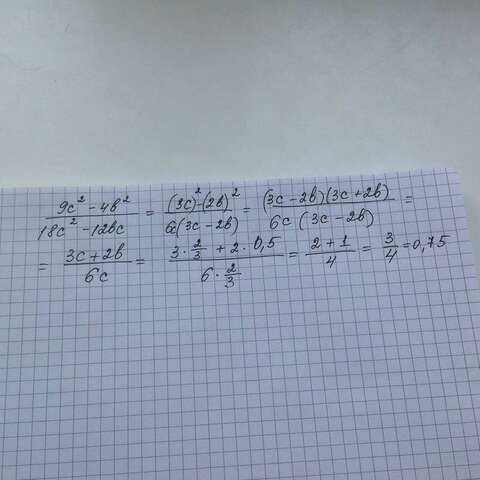 (9c² - 4в²)/(18c² - 12вc) = ((3c)² - (2в)²)/(6c(3c - 2в)) = ((3c - 2в)(3c + 2в))/(6c (3c - 2в)) =
= (3c + 2в)/(6c) = (3 · 2/3 + 2 · 0,5)/(6 · 2/3) = (2 + 1)/4 = 3/4 = 0,75